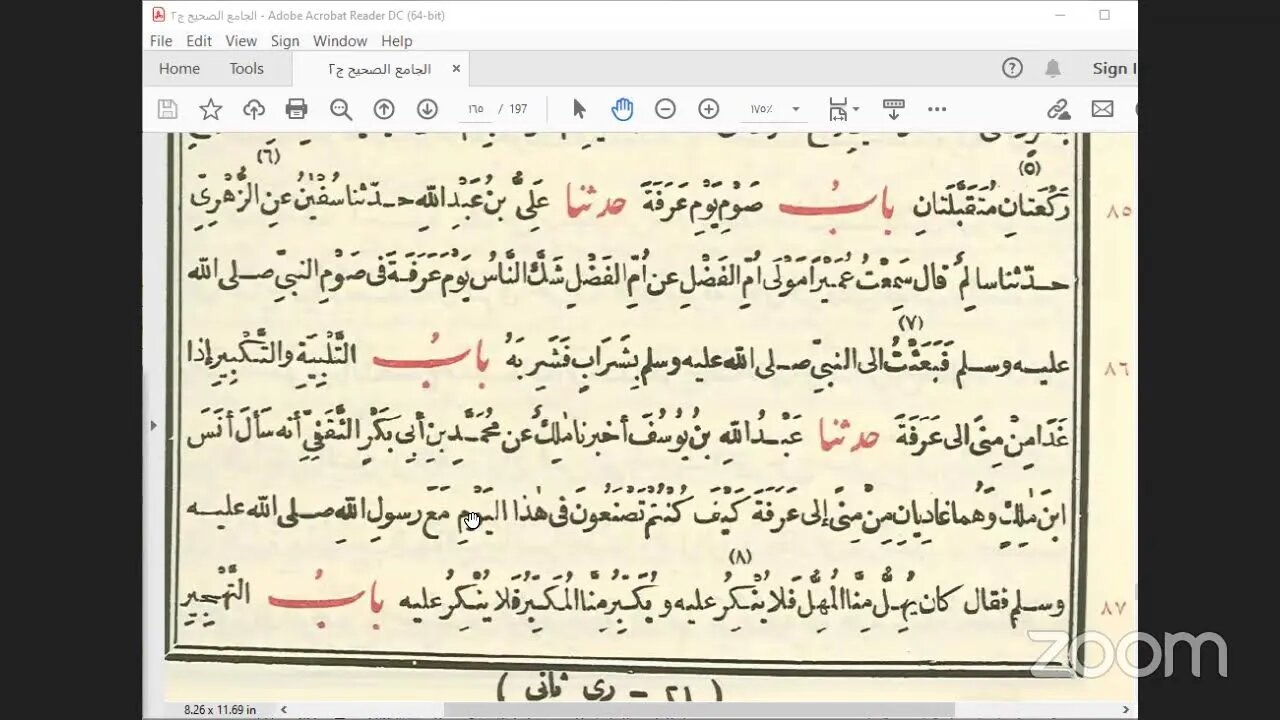 الجامع الصحيح ج٢ - Adobe Acrobat Reader DC (64-bit)
File Edit View Sign Window Help
Home Tools الجامع الصحيح ج٢ × Sign I
١٦٥ / 197 ١٧٥٪
(٥) (٦)
رَكْعَتَانِ مُتَقَبَّلَتَانِ بابُ صَوْمِ يَوْمِ عَرَفَةَ حدثنا عَلِيُّ بنُ عَبْدِ اللهِ حدّثنا سُفْيٰنُ عنِ الزُّهْرِيِّ ٨٥
حدّثنا سالِمٌ قال سَمِعْتُ عُمَيْرًا مَوْلَى أُمِّ الفَضْلِ عن أُمِّ الفَضْلِ شَكَّ النَّاسُ يَوْمَ عَرَفَةَ فى صَوْمِ النبيِّ صلى الله
(٧)
عليه وسلم فَبَعَثْتُ الى النبيِّ صلى الله عليه وسلم بِشَرَابٍ فَشَرِبَهُ بابُ التَّلْبِيَةِ والتَّكْبِيرِ إذا ٨٦
غَدَا مِنْ مِنًى الى عَرَفَةَ حدثنا عَبْدُ اللهِ بنُ يُوسُفَ أخبرنا مٰلِكٌ عن مُحَمَّدِ بنِ أبِي بَكْرٍ الثَّقَفِيِّ أنه سَأَلَ أَنَسَ
ابنَ مٰلِكٍ وَهُما غادِيانِ مِنْ مِنًى إلى عَرَفَةَ كَيْفَ كُنْتُمْ تَصْنَعُونَ فى هٰذا اليَوْمِ مَعَ رسولِ اللهِ صلى الله عليه
(٨)
وسلم فقال كان يُهِلُّ مِنَّا المُهِلُّ فَلا يُنْكِرُ عليه و يُكَبِّرُ مِنَّا المُكَبِّرُ فَلا يُنْكِرُ عليه بابُ التَّهْجِيرِ ٨٧
( ٢١ - رى ثانى )
8.26 x 11.69 in
zoom